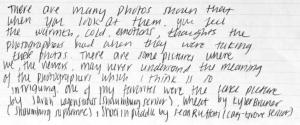 There are many photos shown that
when you look at them, you feel
the warmth, cold, emotions, thoughts the
photographers had when they were taking
their photos. There are some pictures where
we, the viewers, may never understand the meaning
of the photographers which I think is so
intriguing. One of my favorites were the large picture
by Sarah (Schaumburg senior), Wheat by Kyle
(Schaumburg sophomore), Shoes in puddle by (senior)